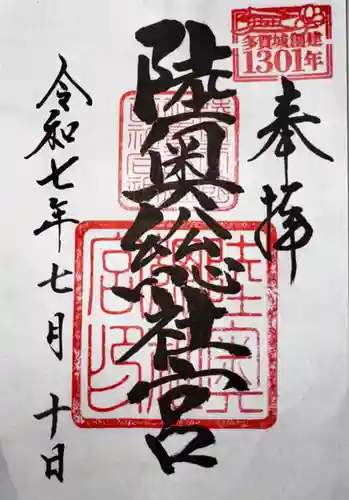 多賀城創建
1301年
奉拝
陸奥總社宮
令和七年七月十日